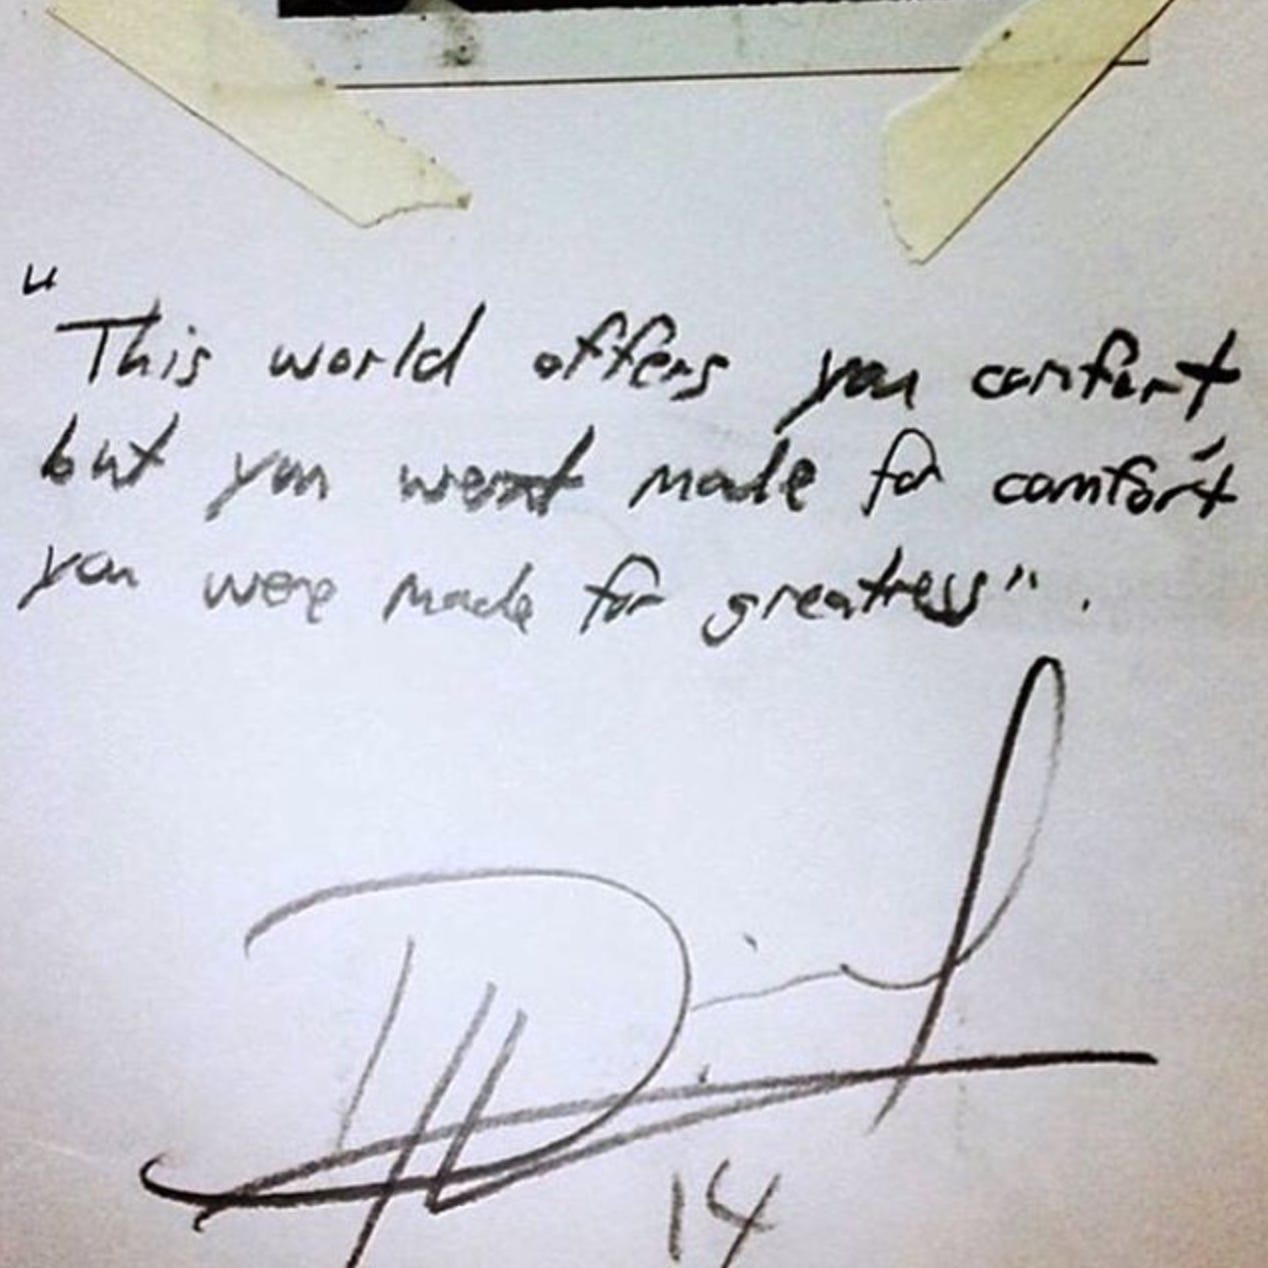 "This world offers you comfort
but you werent made for comfort
you were made for greatness".
14